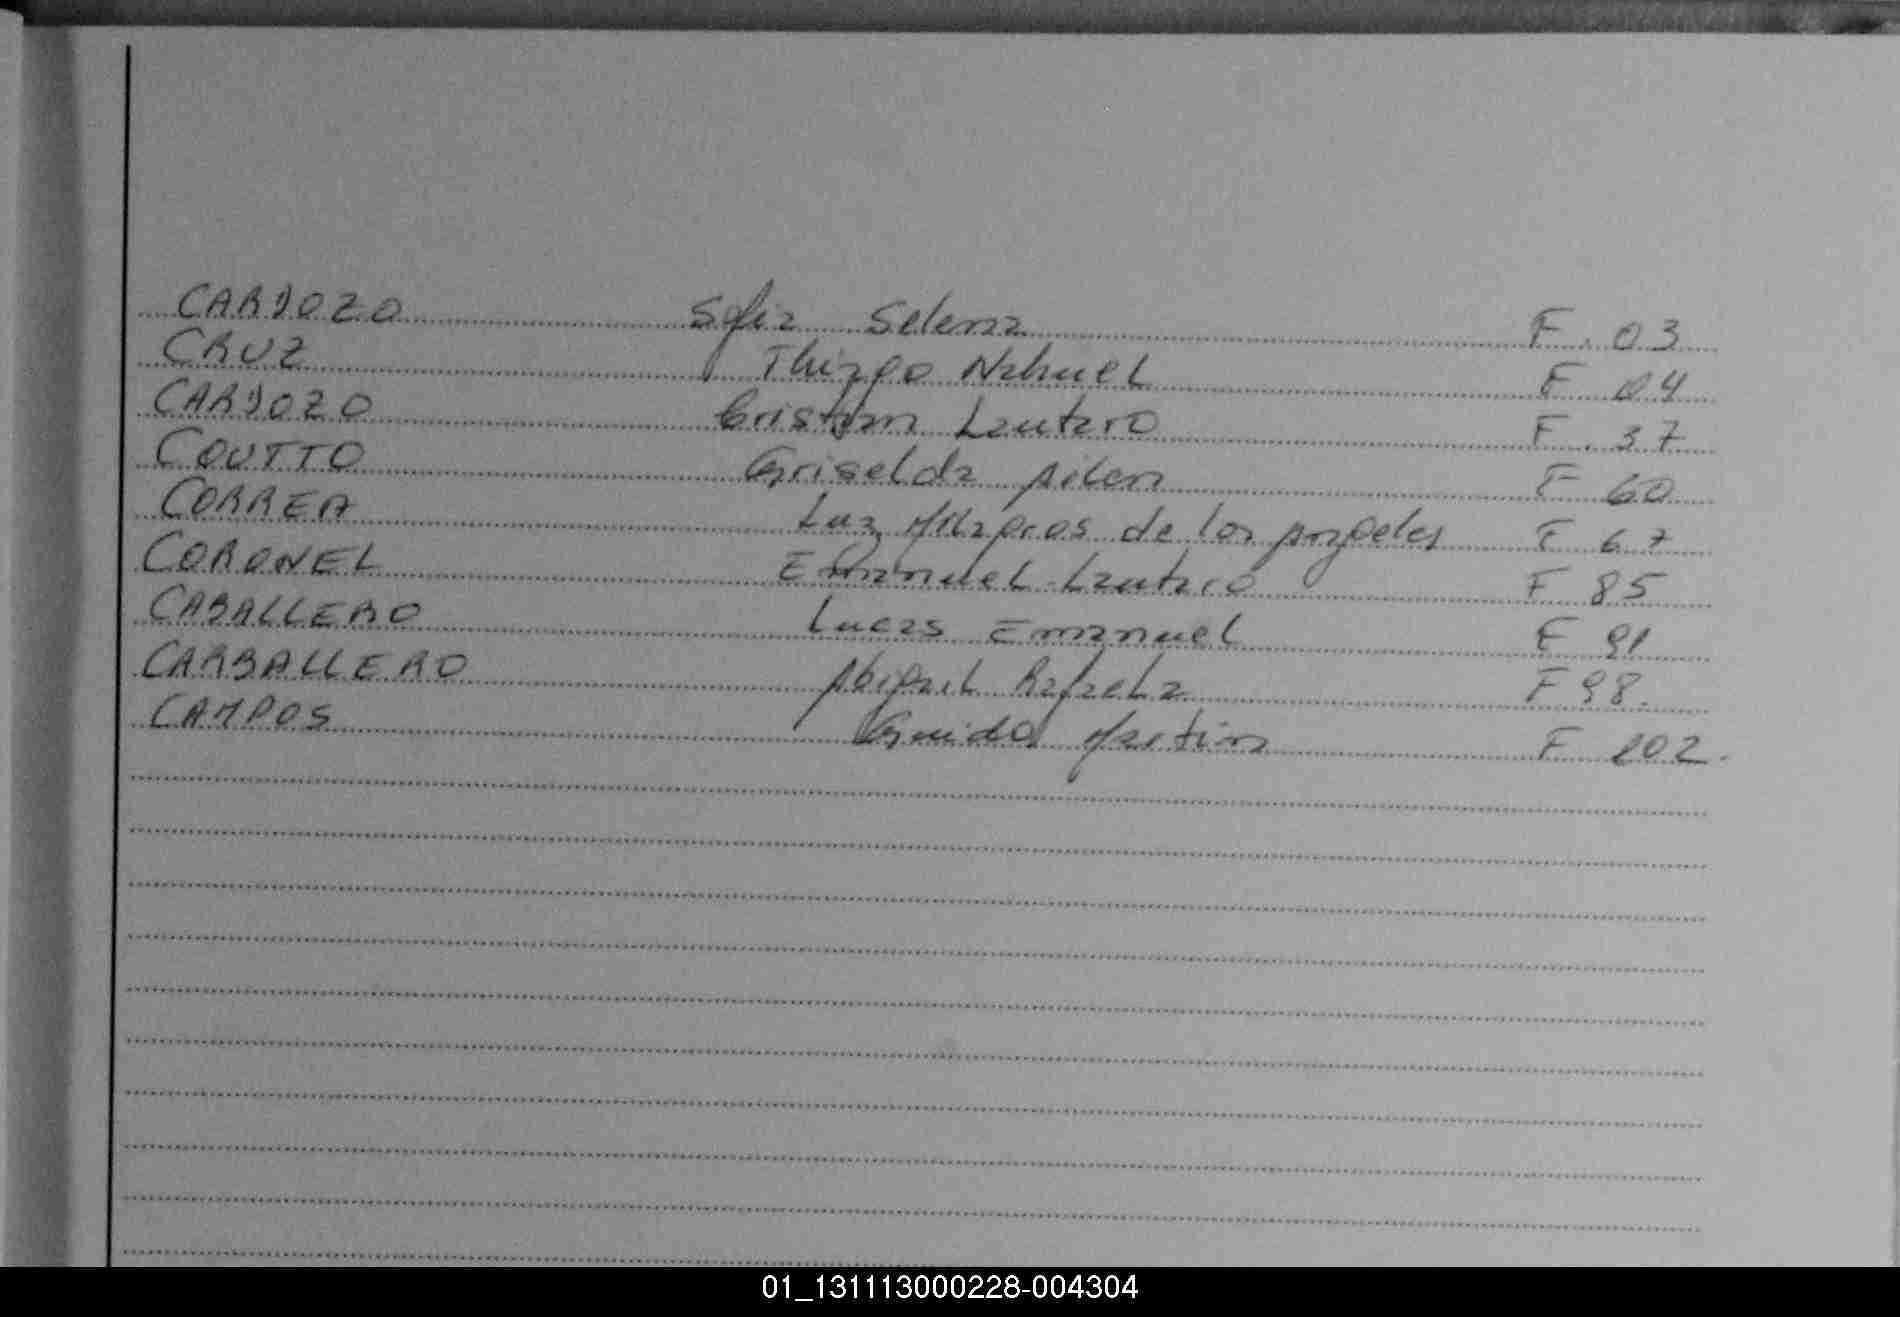 CARDOZO Sofia Selena F. 03
CRUZ Thiago Nahuel F 04
CARDOZO Cristian Lautaro F. 37
COUTTO Griselda Ailen F 60
CORREA Luz Milagros de los Angeles F 67
CORONEL Emanuel Lautaro F 85
CABALLERO Lucas Emanuel F 91
CARBALLERO Abigail Rafaela F 98.
CAMPOS Guido Martin F 102.
01_131113000228-004304